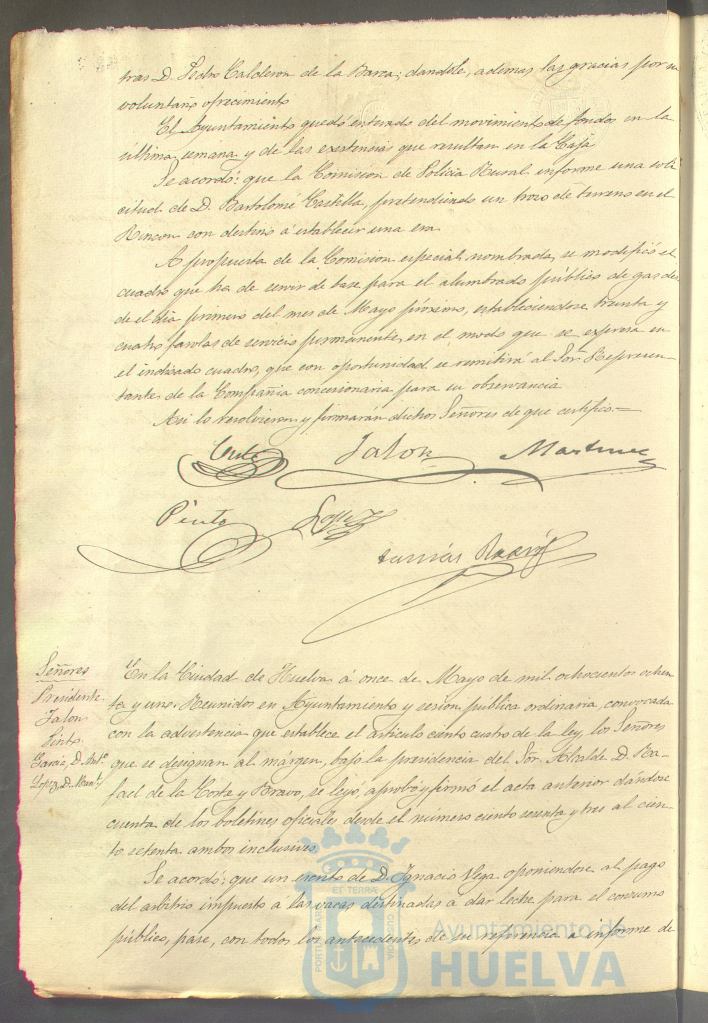 tras D. Pedro Calderon de la Barca; dandole, ademas las gracias por su
voluntario ofrecimiento
El Ayuntamiento quedó enterado del movimiento de fondos en la
última semana y de las existencias que resultan en la Caja
Se acordó: que la Comision de Policia Rural informe una soli
citud de D. Bartolomé Castilla, pretendiendo un trozo de terreno en el
Rincon con destino á establecer una era
A propuesta de la Comision especial nombrada, se modificó el
cuadro que ha de servir de base para el alumbrado público de gas des
de el dia primero del mes de Mayo próximo, estableciendose treinta y
cuatro farolas de servicio permanente, en el modo que se expresa en
el indicado cuadro, que con oportunidad se remitirá al Sor. Represen-
tante de la Compañia concesionaria para su observancia
Asi lo resolvieron y firmarán dichos Señores de que certifico.=
Jalon Martinez
Pinto Lopez
Señores
Presidente
Jalon
Pinto
Garcia, D. Anto.
Lopez, D. Manl.
En la Ciudad de Huelva á once de Mayo de mil ochocientos ochen
ta y uno: Reunidos en Ayuntamiento y sesion pública ordinaria, convocada
con la advertencia que establece el articulo ciento cuatro de la ley, los Señores
que se designan al márgen, bajo la presidencia del Sor. Alcalde D. Ra-
fael de la Corte y Bravo, se leyó, aprobó y firmó el acta anterior dándose
cuenta de los boletines oficiales desde el número ciento sesenta y tres al cien-
to setenta ambos inclusives.
Se acordó: que un escrito de D. Ignacio Vega oponiendose al pago
del arbitrio impuesto a las vacas destinadas á dar leche para el consumo
público, pase, con todos los antecedentes de su referencia a informe de
PORTUS MARIS
ET TERRAE
CUSTODIA
Ayuntamiento de
HUELVA